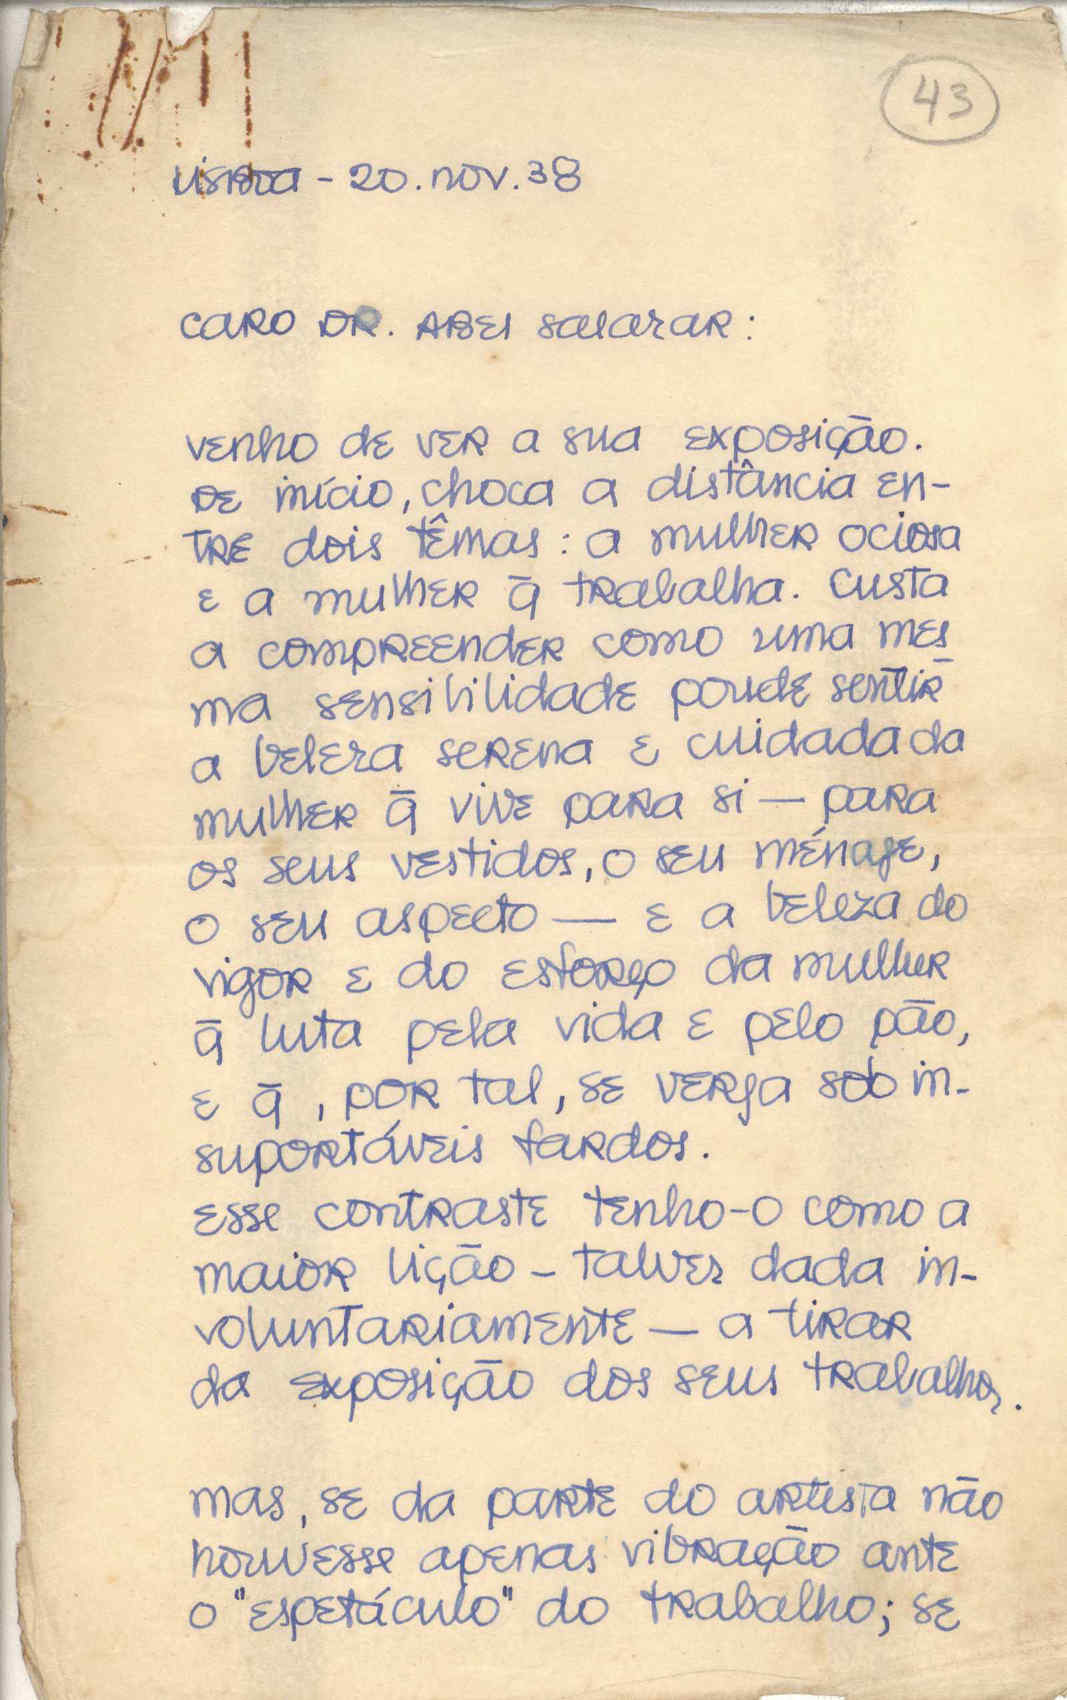 43
Lisboa - 20. nov. 38
Caro Dr. Abel Salazar:
Venho de ver a sua exposição.
De início, choca a distância en-
tre dois têmas: a mulher ociosa
e a mulher q̄ trabalha. Custa
a compreender como uma mes
ma sensibilidade poude sentir
a beleza serena e cuidada da
mulher q̄ vive para si — para
os seus vestidos, o seu ménage,
o seu aspecto — e a beleza do
vigor e do esforço da mulher
q̄ luta pela vida e pelo pão,
e q̄, por tal, se verga sob in-
suportáveis fardos.
Esse contraste tenho-o como a
maior lição - talvez dada in-
voluntariamente — a tirar
da exposição dos seus trabalhos.
Mas, se da parte do artista não
houvesse apenas vibração ante
o "espetáculo" do trabalho; se